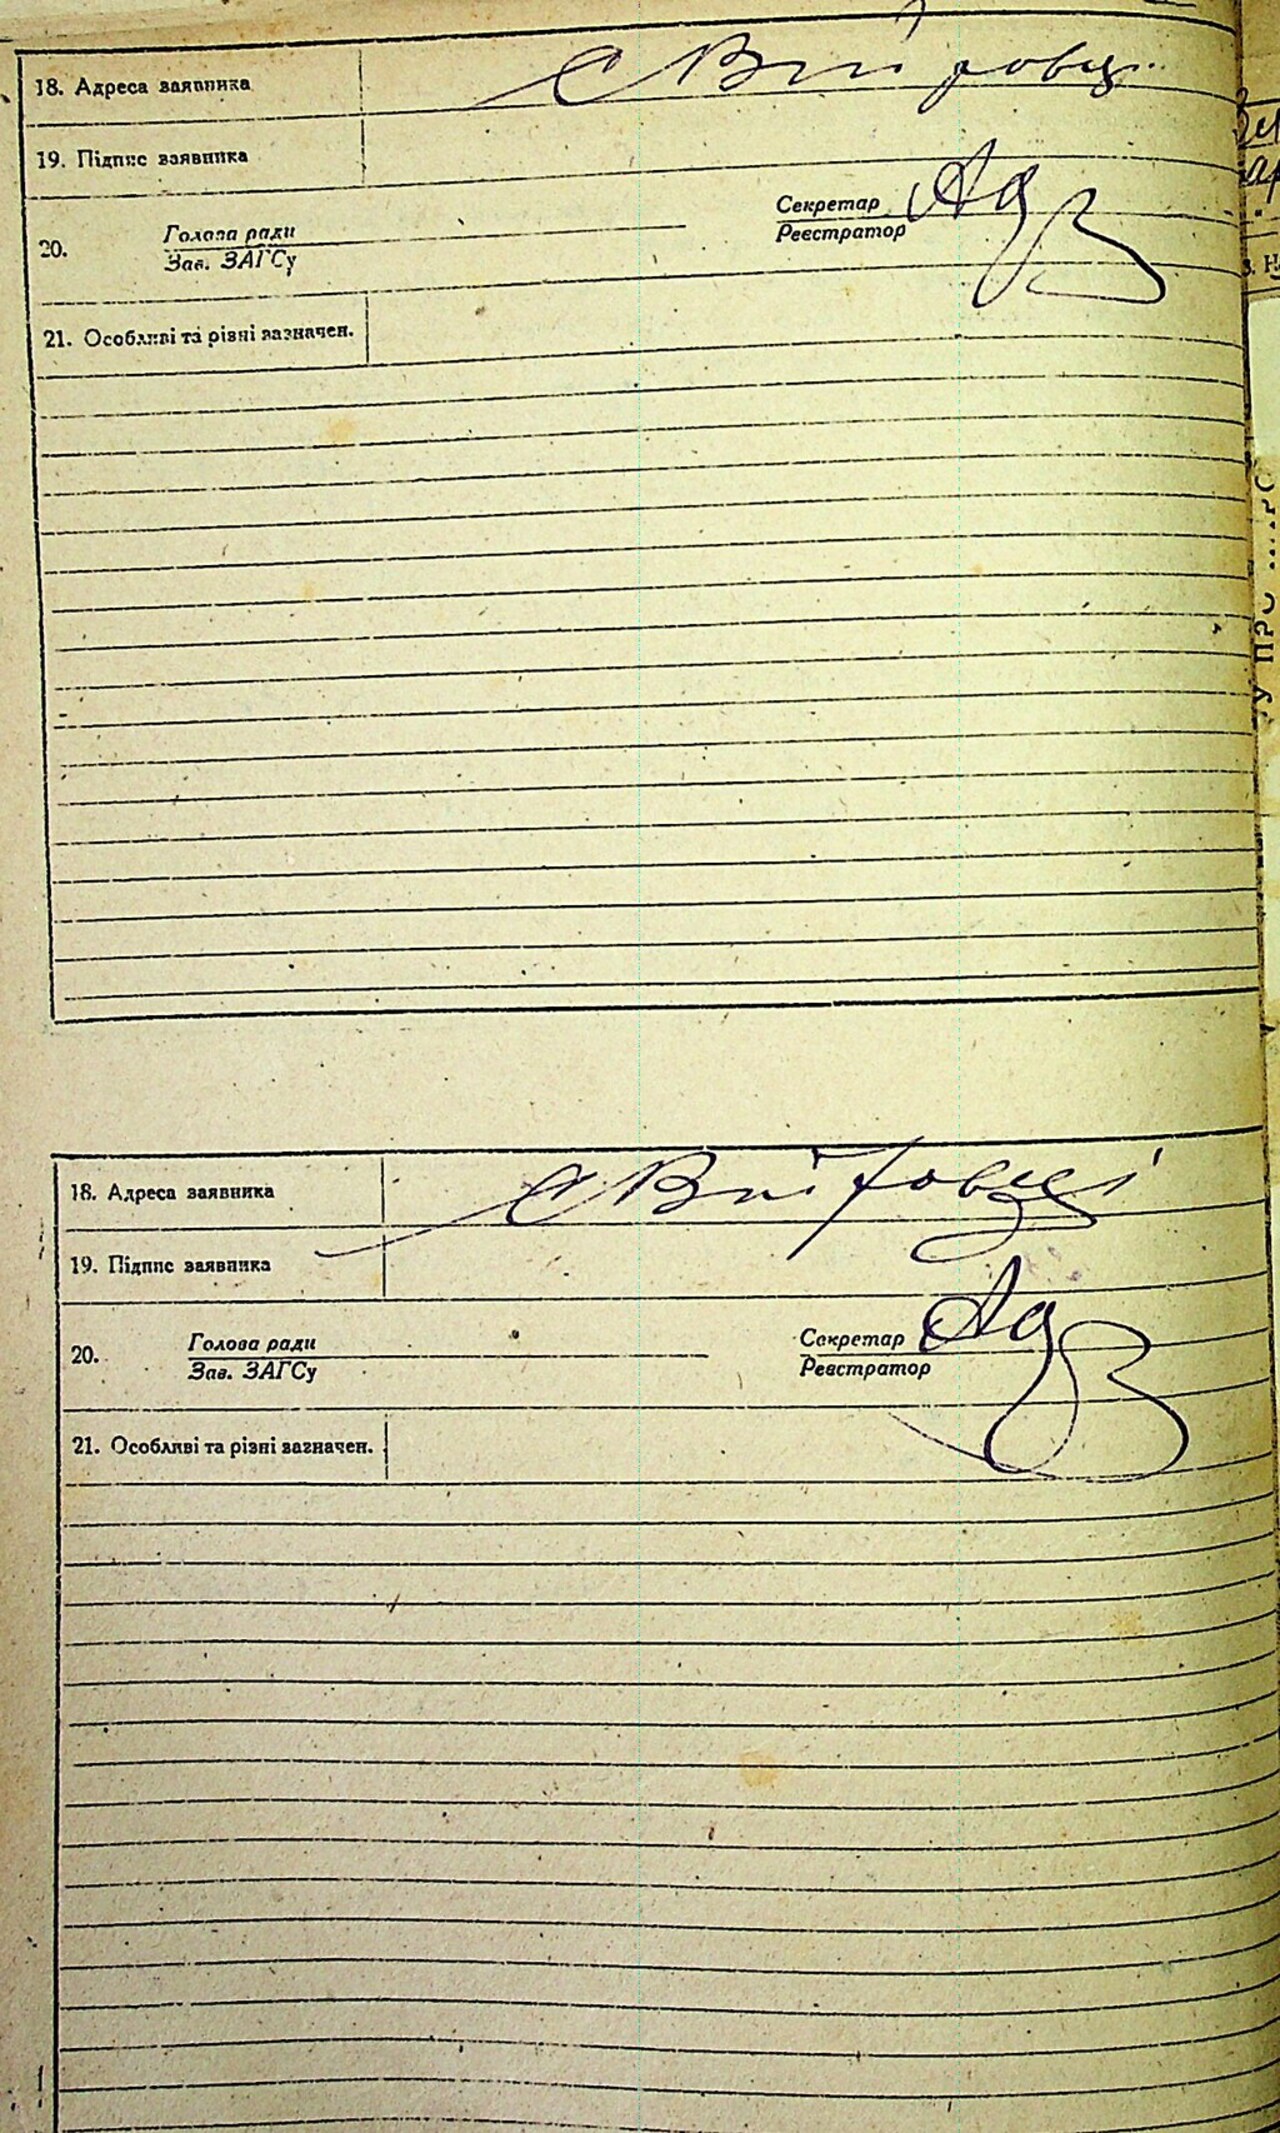 18. Адреса заявника с Війтовці
19. Підпис заявника
20. Голова ради Секретар
Зав. ЗАГСу Реєстратор
21. Особливі та різні зазначен.
18. Адреса заявника с Війтовці
19. Підпис заявника
20. Голова ради Секретар
Зав. ЗАГСу Реєстратор
21. Особливі та різні зазначен.